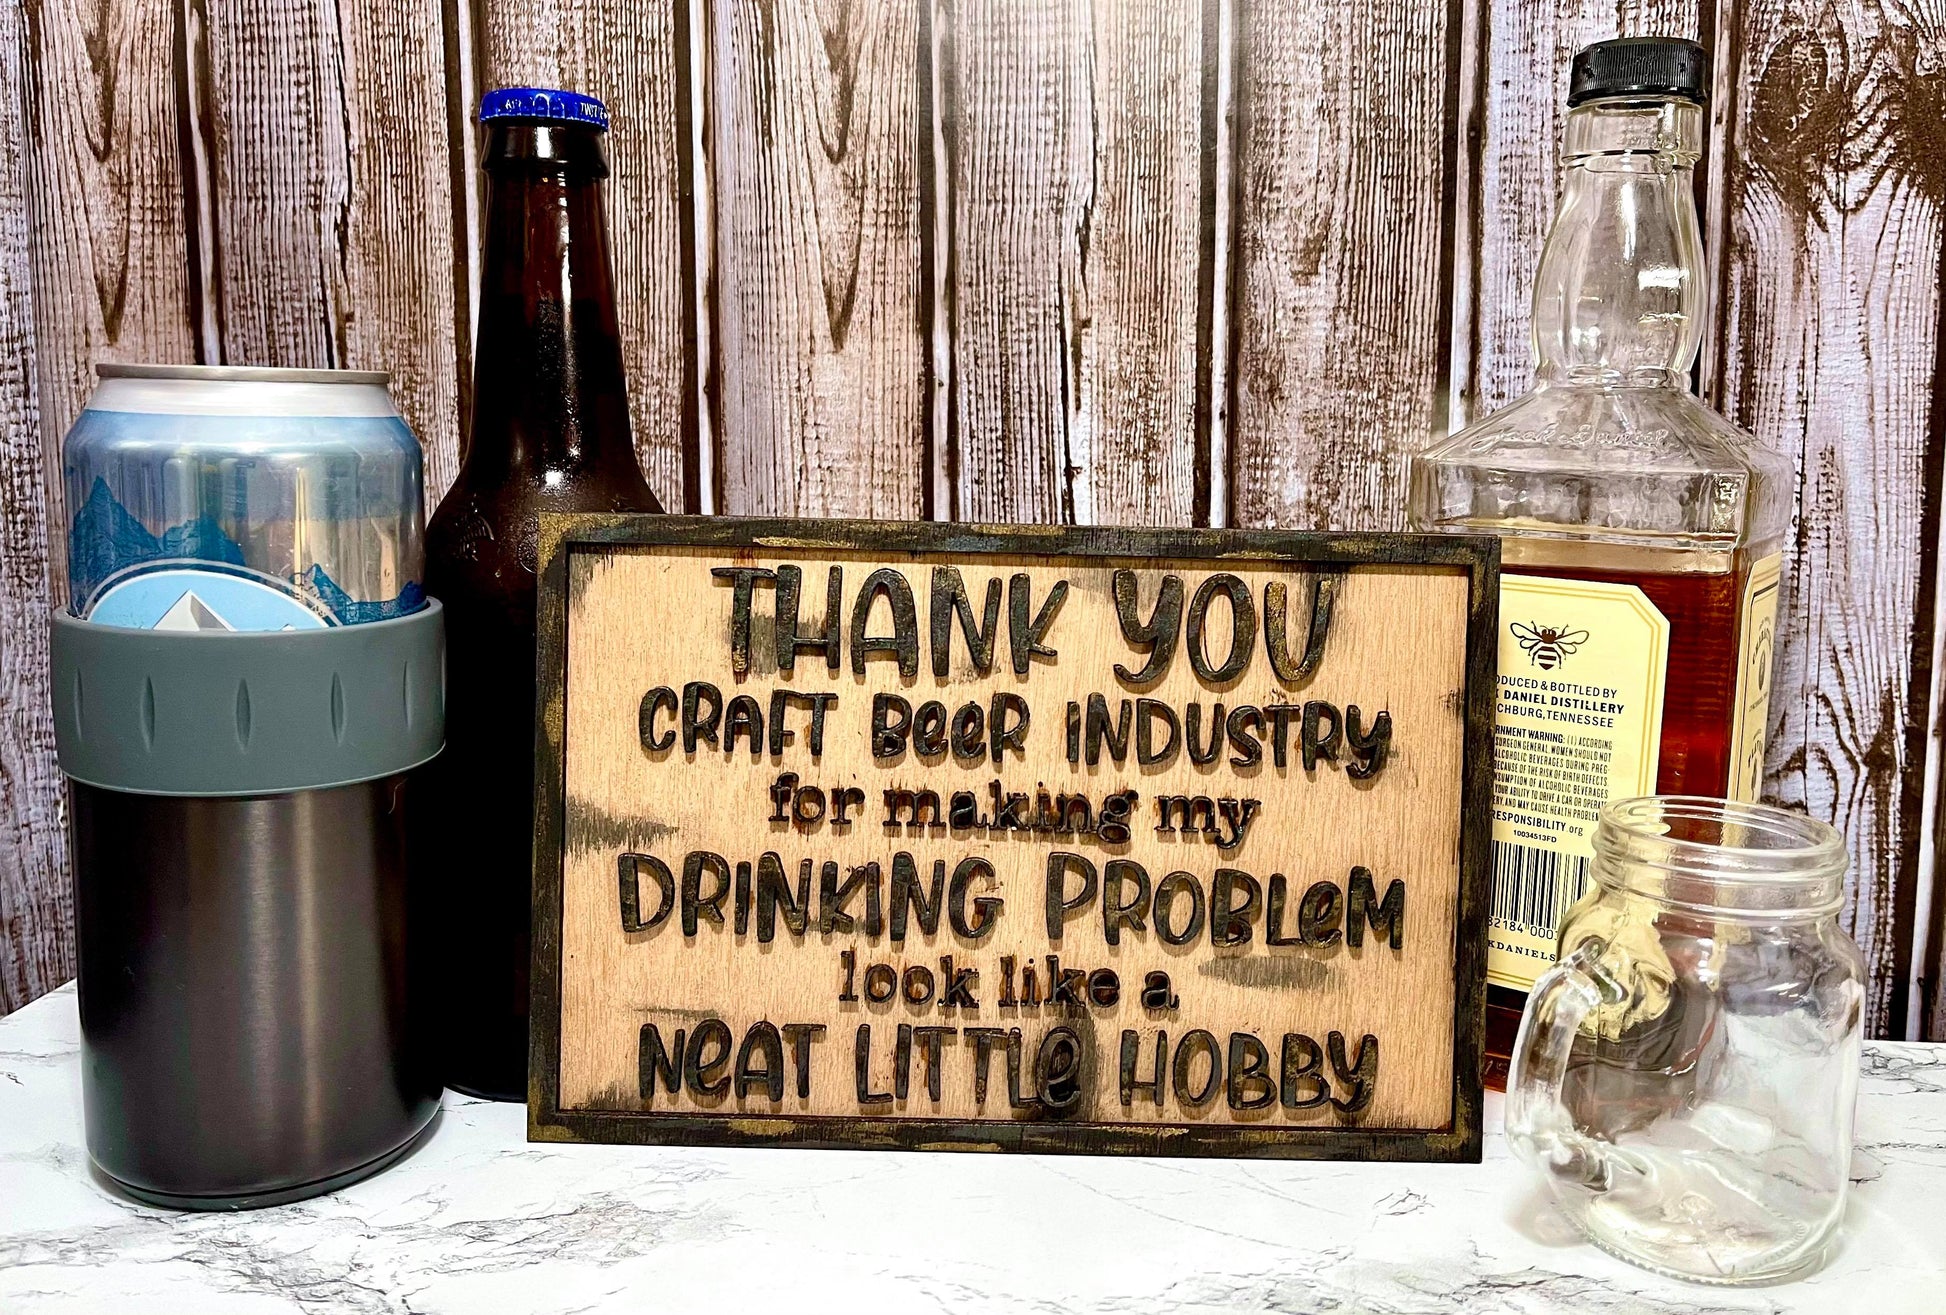 THANK YOU
CRAFT BeeR INDUSTRY
for making my
DRINKING PROBLeM
look like a
NeAT LITTLe HOBBY
Jack Daniel
ODUCED & BOTTLED BY
DANIEL DISTILLERY
CHBURG, TENNESSEE
RNMENT WARNING: (1) ACCORDING
SURGEON GENERAL, WOMEN SHOULD NOT
ALCOHOLIC BEVERAGES DURING PREG-
BECAUSE OF THE RISK OF BIRTH DEFECTS.
NSUMPTION OF ALCOHOLIC BEVERAGES
YOUR ABILITY TO DRIVE A CAR OR OPERATE
ERY, AND MAY CAUSE HEALTH PROBLEM
RESPONSIBILITY.org
10034513FD
82184 000
KDANIELS